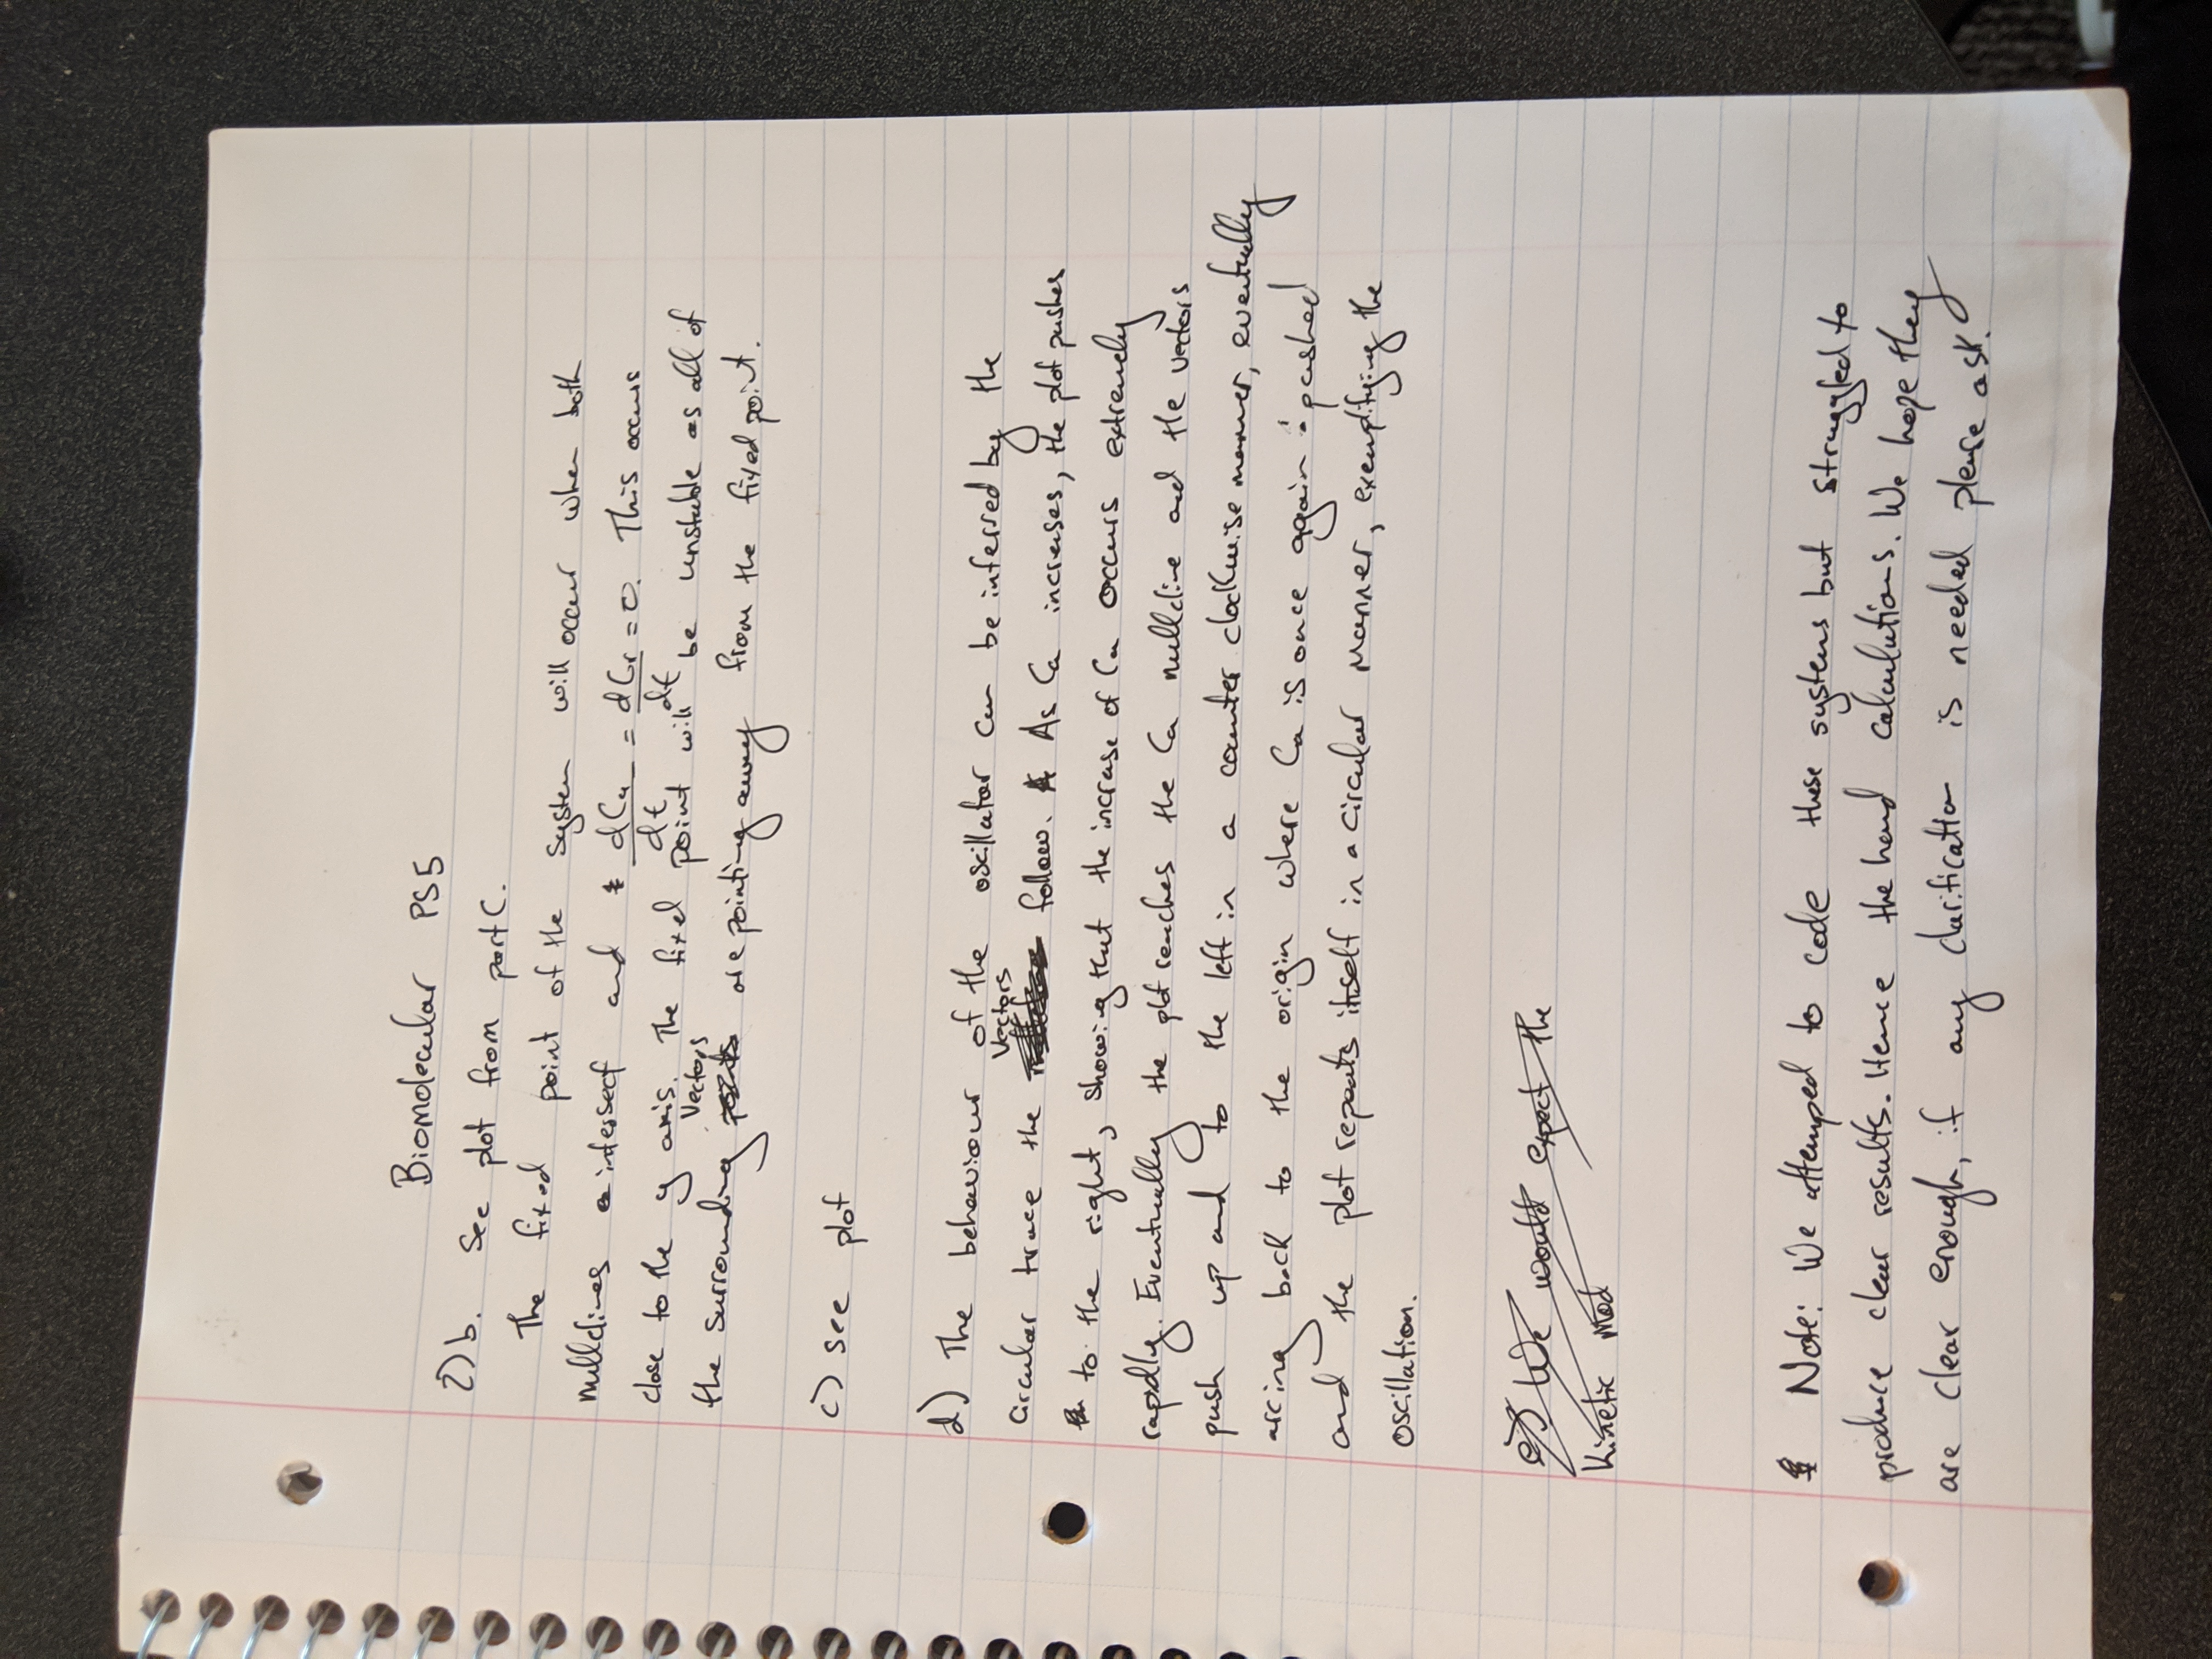 Biomolecular PS5
2) b. See plot from part C.
The fixed point of the system will occur when both
nullclines intersect and dCa/dt = dCr/dt = 0. This occurs
close to the y axis. The fixed point will be unstable as all of
the surrounding Vectors are pointing away from the fixed point.
c) see plot
d) The behaviour of the oscillator can be inferred by the
circular trace the Vectors follow. As Ca increases, the plot pushes
to the right, showing that the increase of Ca occurs extremely
rapidly. Eventually the plot reaches the Ca nullcline and the vectors
push up and to the left in a counter clockwise manner, eventually
arcing back to the origin where Ca is once again pushed
and the plot repeats itself in a circular manner, exemplifying the
oscillation.
e) We would expect the
Kinetic Mod
Note: We attemped to code these systems but struggled to
produce clear results. Hence the hand calculations. We hope they
are clear enough, if any clarification is needed please ask.